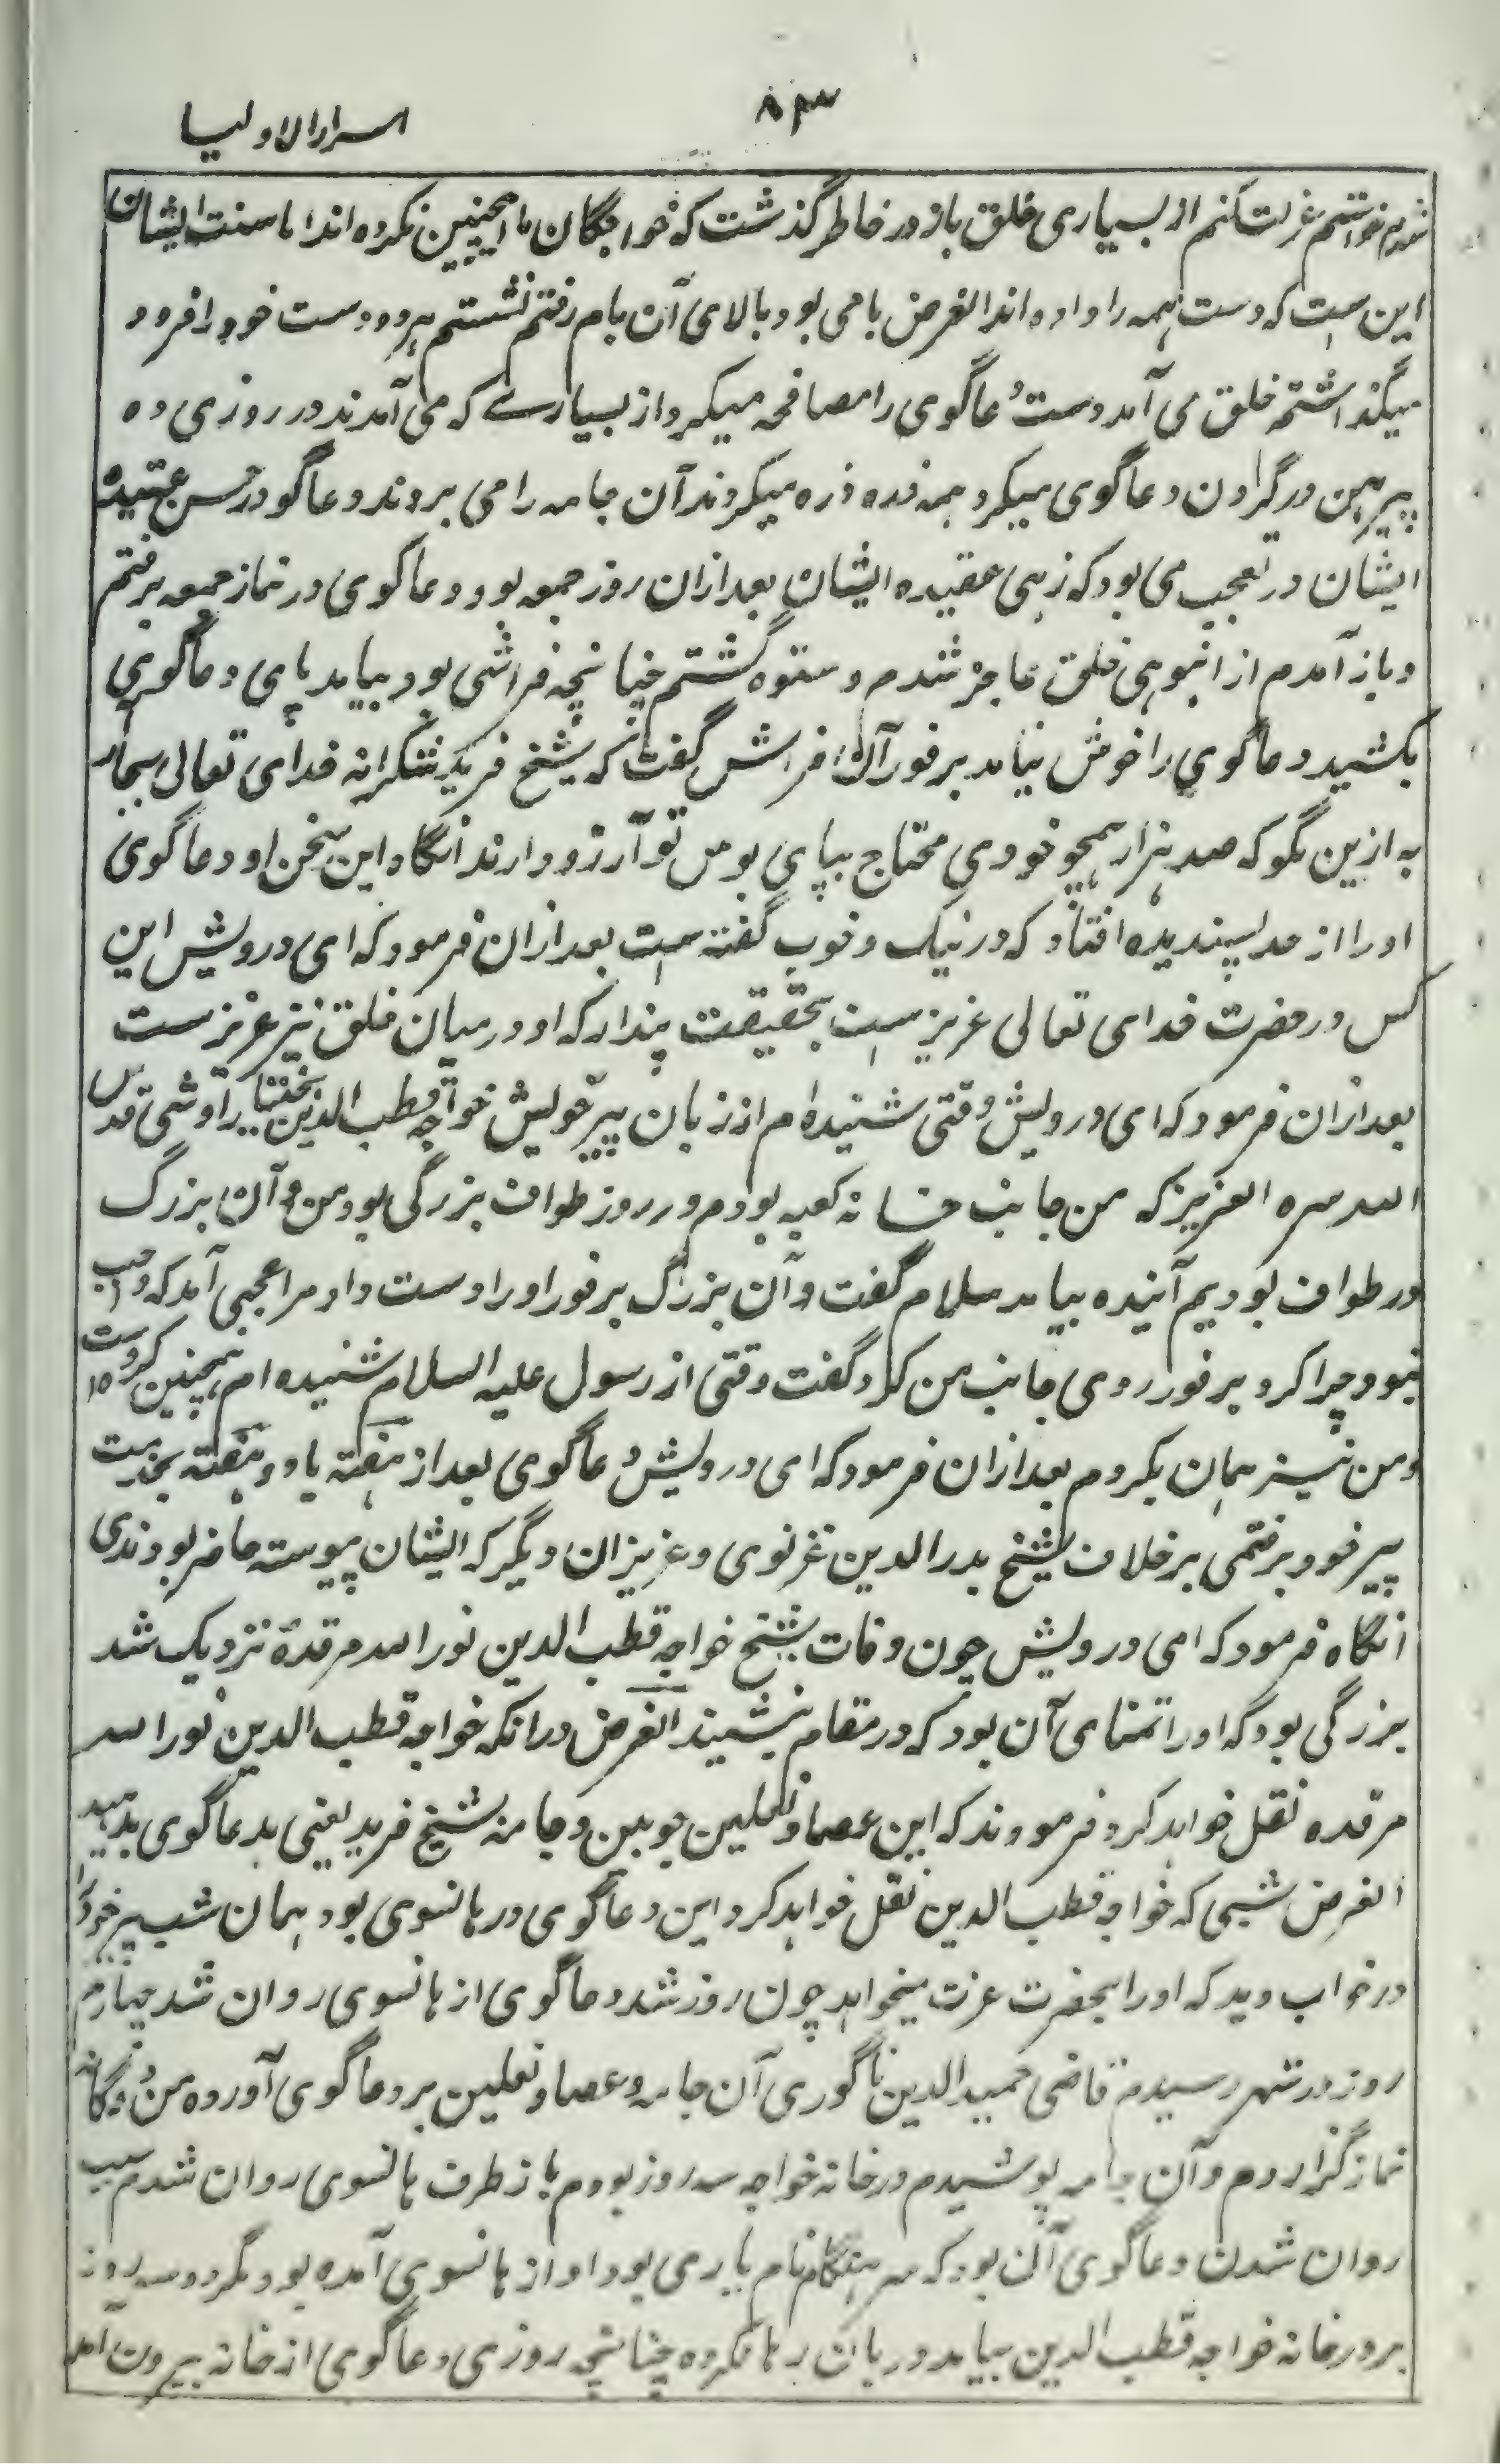 ۸۳
اسرارالاولیا
شدم خواستم عزلت کنم از بسیاری خلق باز در خاطر گذشت که خواجگان ما همچنین نکرده اند اما سنت ایشان
این ست که دست همه را داده اند الغرض بامی بود بالای آن بام رفتم نشستم هر دو دست خود را فرود
میگذاشتم خلق می آمد دست دعاگوی را مصافحه میکرد از بسیارے که می آمدند در روزی ده
پیرهن در گردن دعاگوی میکرد همه ذره ذره میکردند آن جامه را می بردند دعاگو در حسن عقیده
ایشان در تعجب می بود که زهی عقیده ایشان بعد ازان روز جمعه بود و دعاگوی در نماز جمعه برفتم
و باز آمدم از انبوهی خلق عاجز شدم و ستوه گشتم چنانچه فراشی بود بیامد پای دعاگوی
بکشید دعاگوی را خوش نیامد بر فور آن فراش گفت که شیخ فرید شکرانه خدای تعالی بجا آر
به ازین بگو که صد هزار همچو خودی محتاج بپای بوس تو آرزو دارند آنگاه این سخن او دعاگوی
اورا از حد پسندیده افتاد که در نیک و خوب گفته ست بعد ازان فرمود که ای درویش این
کس در حضرت خدای تعالی عزیز ست بتحقیقت پندار که او در میان خلق نیز عزیز ست
بعد ازان فرمود که ای درویش وقتی شنیده ام از زبان پیر خویش خواجه قطب الدین بختیار اوشی قدس
الله سره العزیز که من جانب خانه کعبه بودم در روز طواف بزرگی بود من و آن بزرگ
در طواف بودیم آینده بیامد سلام گفت و آن بزرگ بر فور او را دست داد مرا عجبی آمد که واجب
نبود چرا کرد بر فور روی جانب من کرد گفت وقتی از رسول علیه السلام شنیده ام همچنین کرده ست
و من نیز همان بکردم بعد ازان فرمود که ای درویش دعاگوی بعد از هفته یا دو هفته بخدمت
پیر خود برفتمی بر خلاف شیخ بدرالدین غزنوی و عزیزان دیگر که ایشان پیوسته حاضر بودندی
آنگاه فرمود که ای درویش چون وفات شیخ خواجه قطب الدین نور الله مرقده نزدیک شد
بزرگی بود که او را تمنای آن بود که در مقام بنشیند الغرض در آنکه خواجه قطب الدین نور الله
مرقده نقل خواهد کرد فرمودند که این عصا و نعلین چوبین و جامه شیخ فرید یعنی بدعاگوی بدهید
الغرض شبی که خواجه قطب الدین نقل خواهد کرد این دعاگوی در هانسوی بود همان شب پیر خود را
در خواب دید که او را بحضرت عزت میخواهد چون روز شد دعاگوی از هانسوی روان شد چهارم
روز در شهر رسیدم قاضی حمیدالدین ناگوری آن جامه و عصا و نعلین بر دعاگوی آورده من دوگانه
نماز گزاردم و آن جامه پوشیدم در خانه خواجه سه روز بودم باز طرف هانسوی روان شدم سبب
روان شدن دعاگوی آن بود که سرهنگا نام یاری بود او از هانسوی آمده بود مگر دو سه روز
بر در خانه خواجه قطب الدین بیامد دربان رها نکرده چنانچه روزی دعاگوی از خانه بیرون آمد